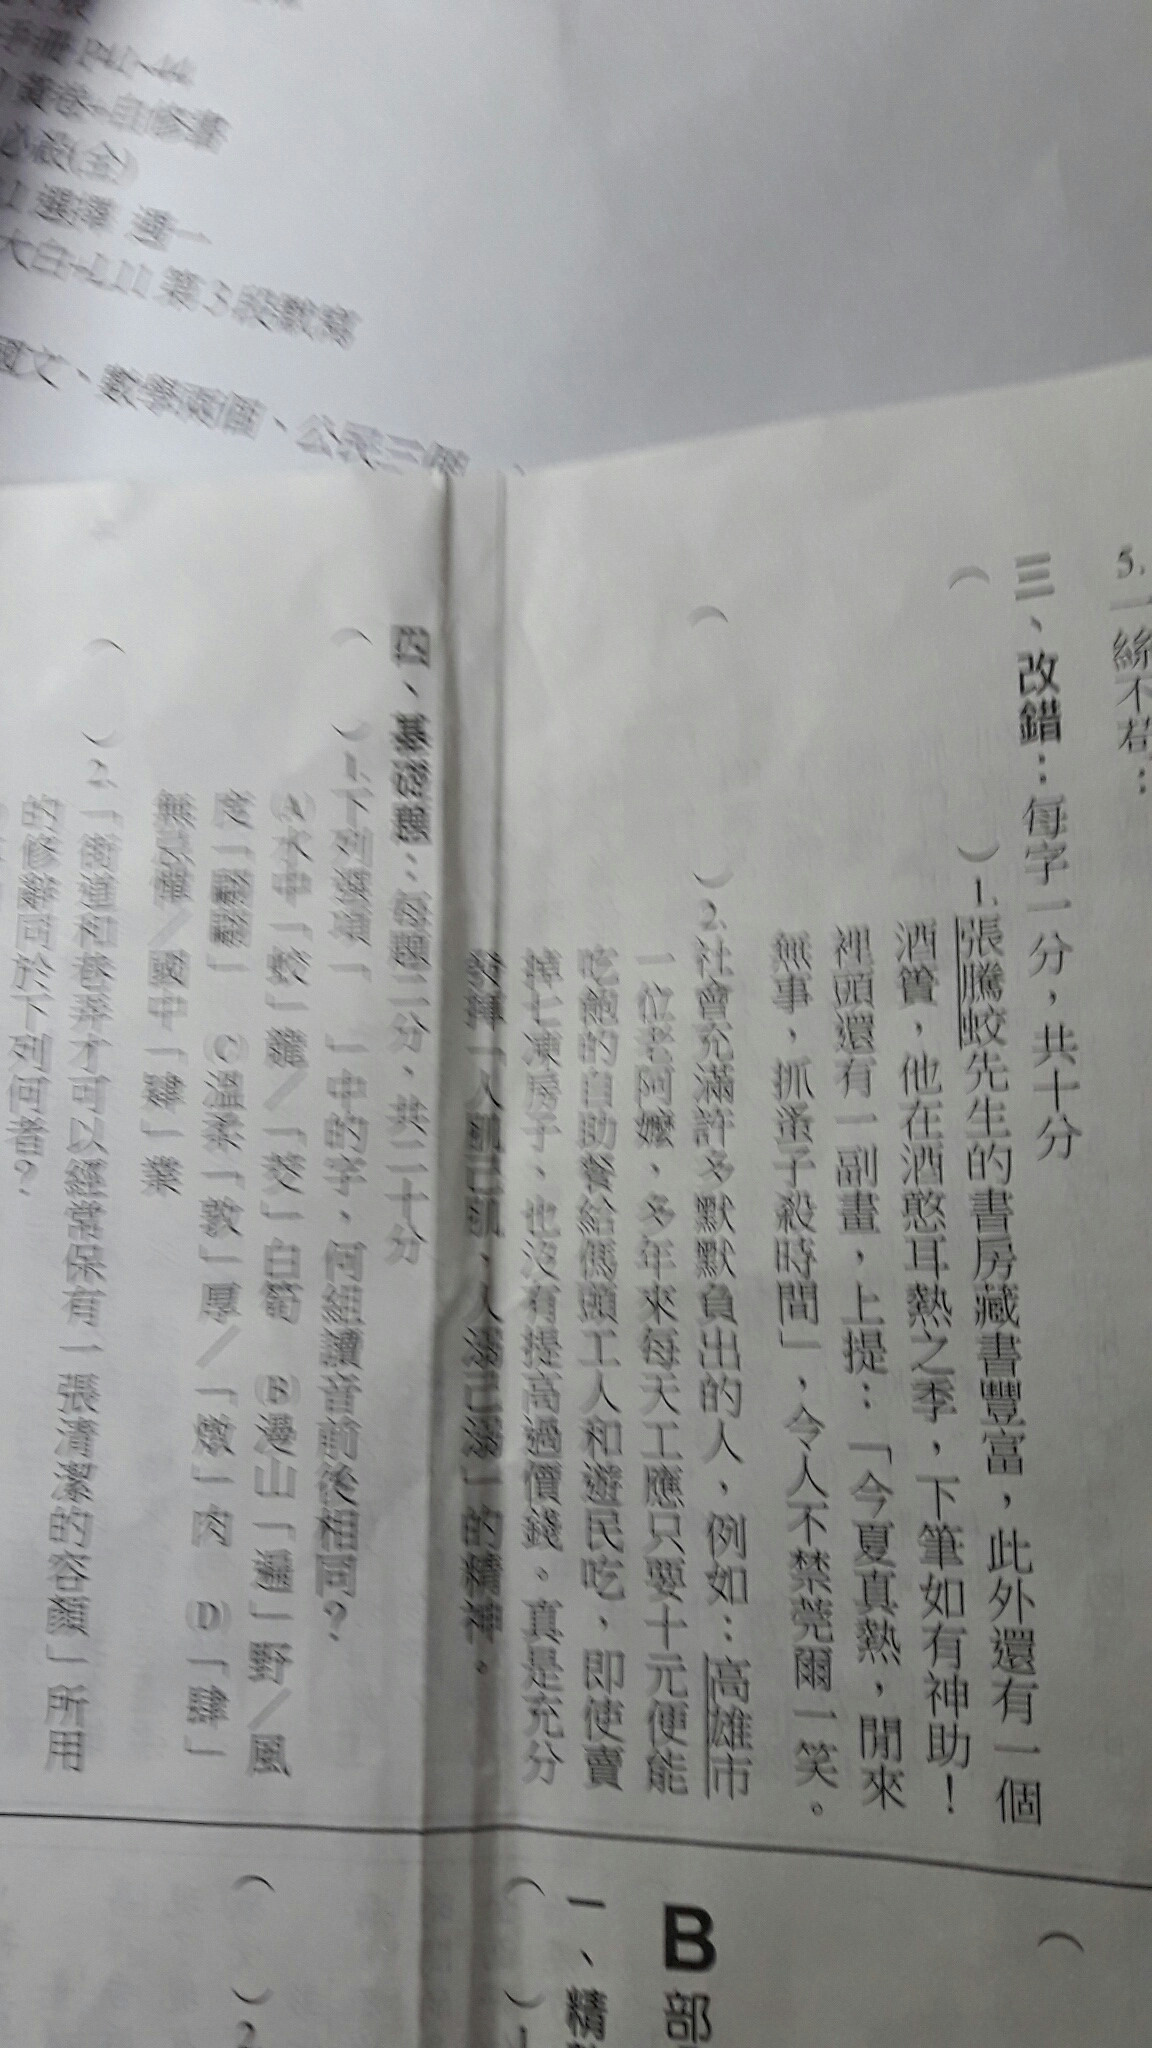 5.一絲不苟：
三、改錯：每字一分，共十分
（　）1.張騰蛟先生的書房藏書豐富，此外還有一個
酒簣，他在酒憨耳熱之季，下筆如有神助！
裡頭還有一副畫，上提：「今夏真熱，閒來
無事，抓蚤子殺時間」，令人不禁莞爾一笑。
（　）2.社會充滿許多默默負出的人，例如：高雄市
一位老阿嬤，多年來每天工應只要十元便能
吃飽的自助餐給傌頭工人和遊民吃，即使賣
掉七凍房子，也沒有提高過價錢。真是充分
發揮「人飢己飢，人溺己溺」的精神。
四、基礎題：每題二分，共二十分
（　）1.下列選項「　」中的字，何組讀音前後相同？
(A)水中「蛟」龍／「茭」白筍　(B)漫山「遍」野／風
度「翩翩」　(C)溫柔「敦」厚／「燉」肉　(D)「肆」
無忌憚／國中「肄」業
（　）2.「街道和巷弄才可以經常保有一張清潔的容顏」所用
的修辭同於下列何者？
大白+L11 第3段默寫
國文、數學兩個、公民三
必敗(全)
選擇 週一
黃卷+自修
B 部
一、精
（　）1
（　）2